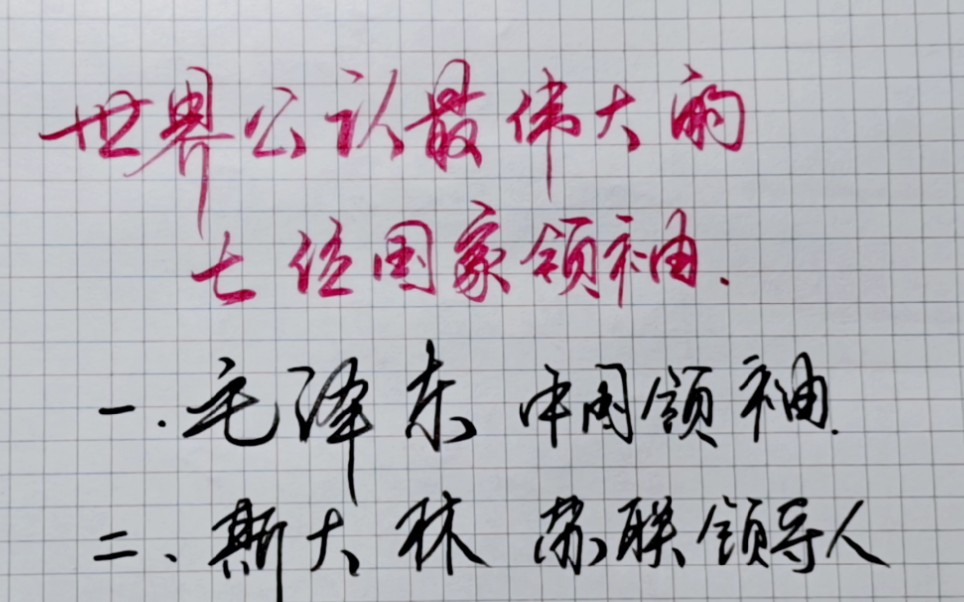 世界公认最伟大的
七位国家领袖.
一.毛泽东 中国领袖.
二、斯大林 苏联领导人